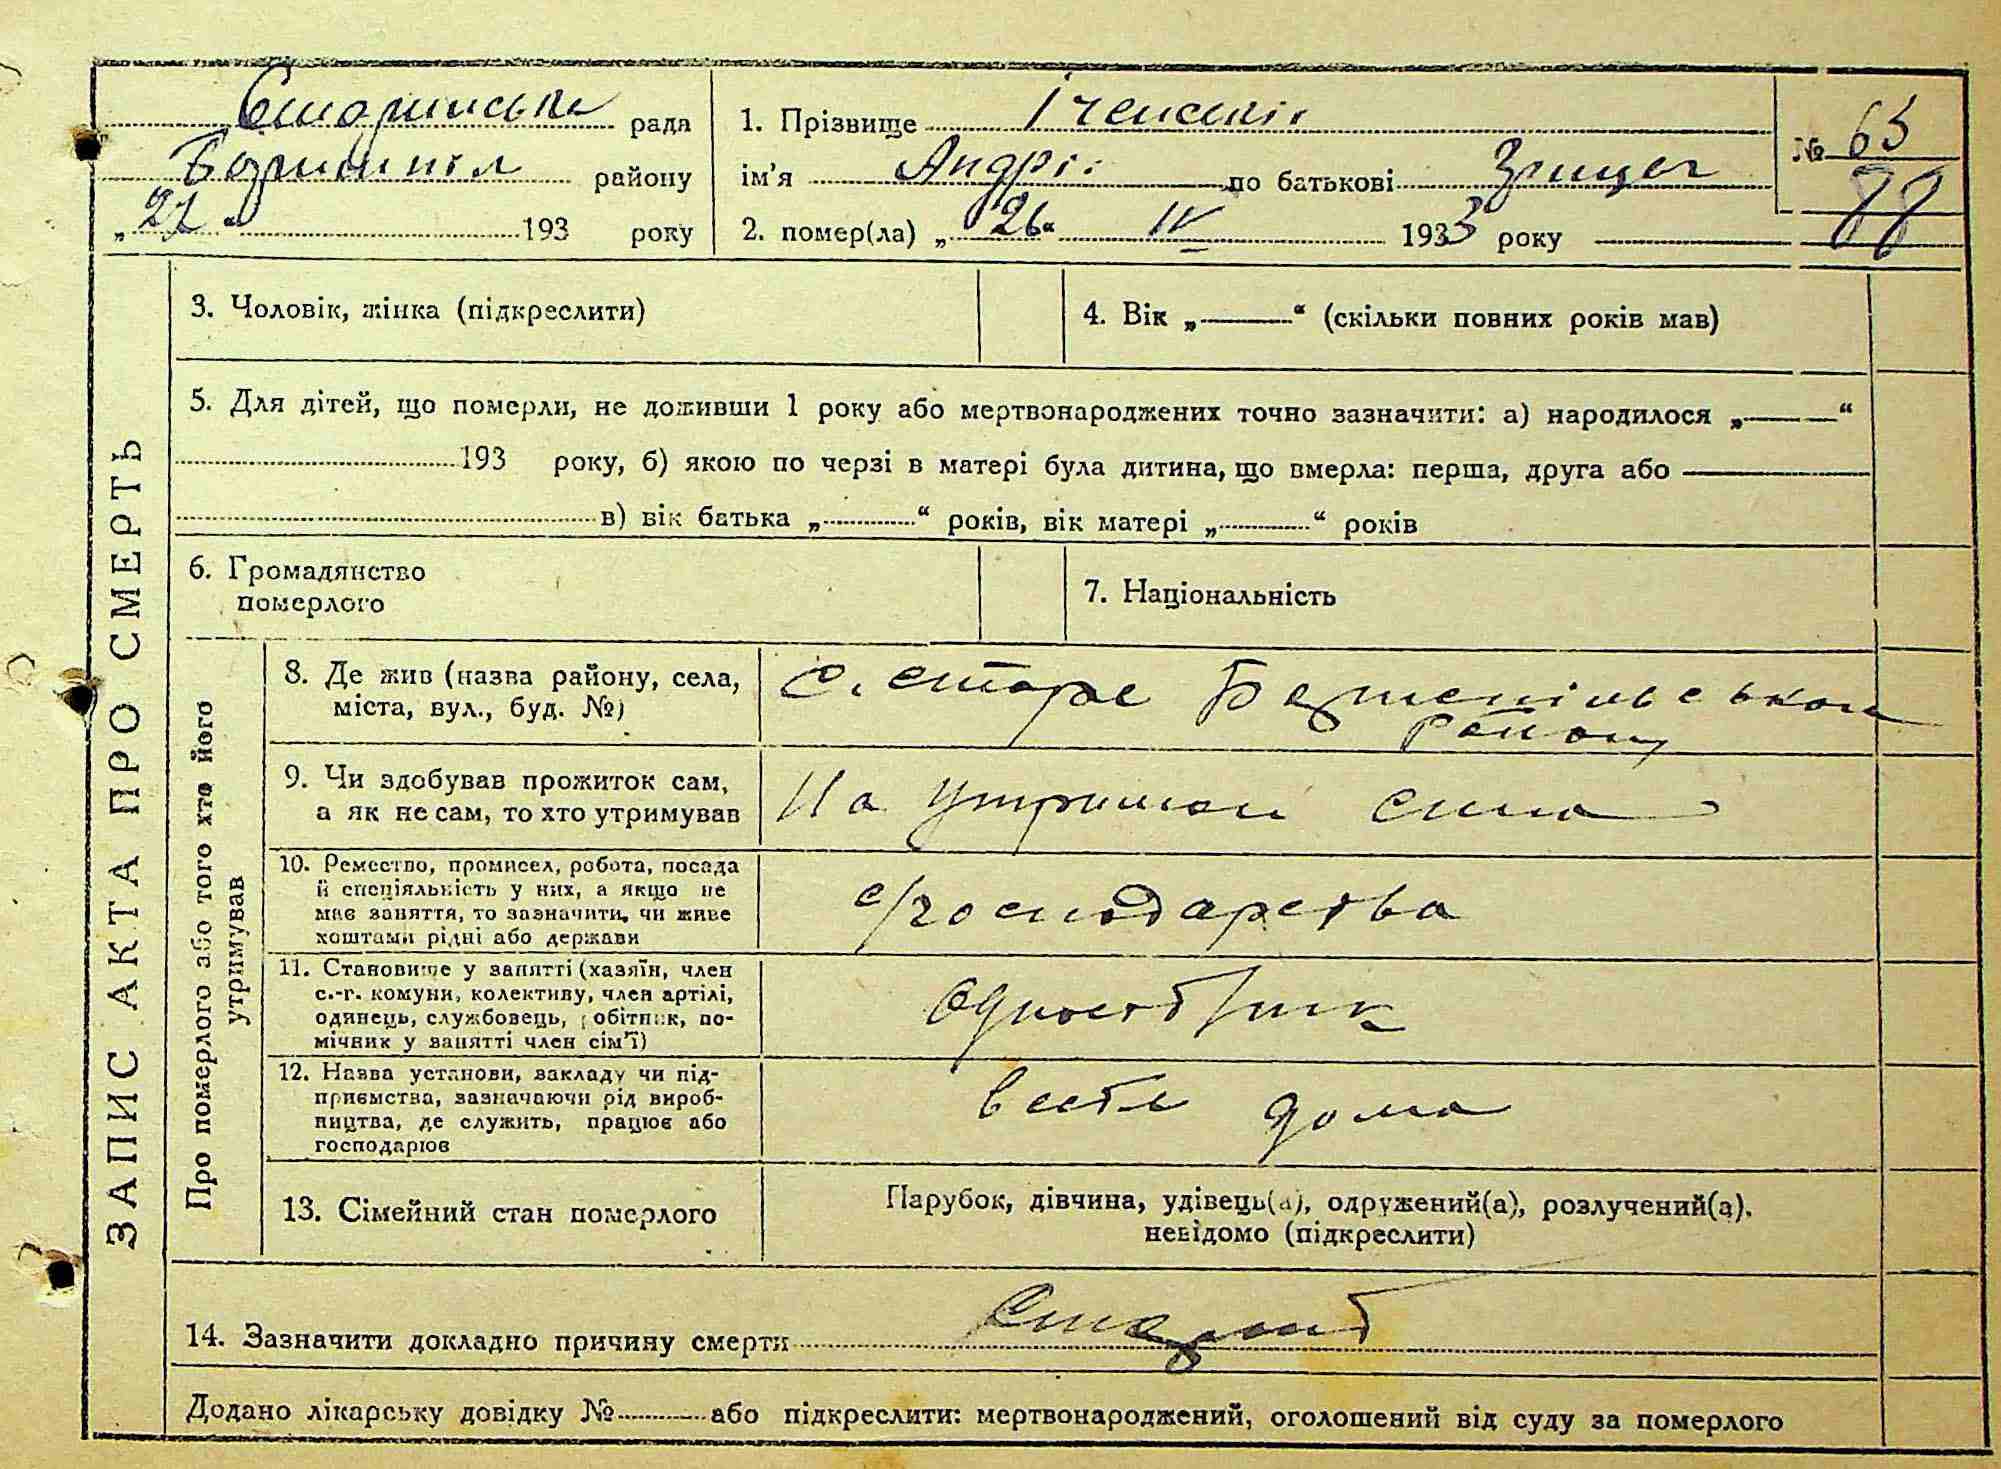 Старинська рада
Бориспіл району
„27“ 193 року
1. Прізвище
ім'я Андрій по батькові
2. помер(ла) „26“ IV 1933 року
№ 63
88
ЗАПИС АКТА ПРО СМЕРТЬ
3. Чоловік, жінка (підкреслити)
4. Вік „——“ (скільки повних років мав)
5. Для дітей, що померли, не доживши 1 року або мертвонароджених точно зазначити: а) народилося „——“
193 року, б) якою по черзі в матері була дитина, що вмерла: перша, друга або
в) вік батька „......“ років, вік матері „......“ років
6. Громадянство
померлого
7. Національність
Про померлого або того хто його
утримував
8. Де жив (назва району, села,
міста, вул., буд. №)
с. Старе Бориспільського
району
9. Чи здобував прожиток сам,
а як не сам, то хто утримував
На утриман сина
10. Ремество, промисел, робота, посада
й спеціяльність у них, а якщо не
має заняття, то зазначити, чи живе
коштами рідні або держави
с/господарства
11. Становище у занятті (хазяїн, член
с.-г. комуни, колективу, член артілі,
одинець, службовець, робітник, по-
мічник у занятті член сім'ї)
Одноосібник
12. Назва установи, закладу чи під-
приємства, зазначаючи рід вироб-
ництва, де служить, працює або
господарює
в себе дома
13. Сімейний стан померлого
Парубок, дівчина, удівець(а), одружений(а), розлучений(а),
невідомо (підкреслити)
14. Зазначити докладно причину смерти
Додано лікарську довідку № або підкреслити: мертвонароджений, оголошений від суду за померлого